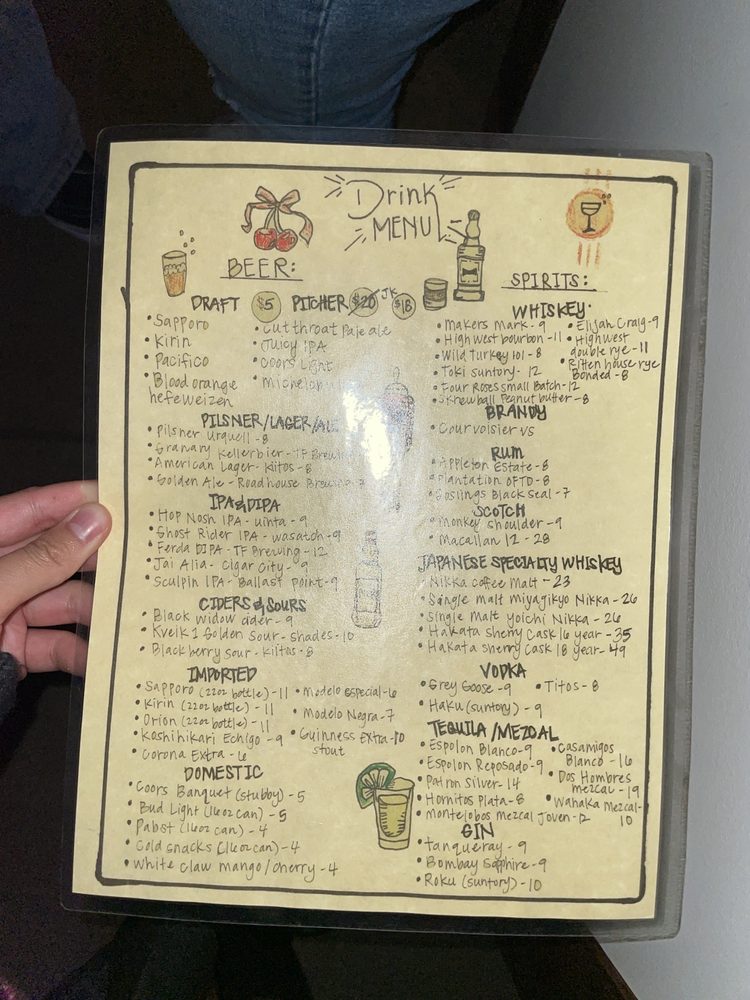 Drink
MENU
BEER:
DRAFT $5 PITCHER $20 JK $18
• Sapporo
• Kirin
• Pacifico
• Blood orange
hefeweizen
• Cutthroat Pale ale
• Juicy IPA
• Coors Light
PILSNER/LAGER/
• Pilsner Urquell - 8
• Granary Kellerbier - TF
• American Lager - Kiitos - 8
• Golden Ale - Roadhouse Brewing
IPA & DIPA
• Hop Nosh IPA - uinta - 9
• Ghost Rider IPA - wasatch - 9
• Ferda DIPA - TF Brewing - 12
• Jai Alia - Cigar City - 9
• Sculpin IPA - Ballast Point - 9
CIDERS & SOURS
• Black widow cider - 9
• Kveik 1 Golden Sour - Shades - 10
• Blackberry sour - Kiitos - 8
IMPORTED
• Sapporo (22oz bottle) - 11
• Kirin (22oz bottle) - 11
• Orion (22oz bottle) - 11
• Koshihikari Echigo - 9
• Corona Extra - 6
• Modelo Especial - 6
• Modelo Negra - 7
• Guinness Extra - 10
stout
DOMESTIC
• Coors Banquet (stubby) - 5
• Bud Light (16oz can) - 5
• Pabst (16oz can) - 4
• Cold snacks (16oz can) - 4
• White claw mango/cherry - 4
SPIRITS:
WHISKEY:
• Makers Mark - 9
• High west bourbon - 11
• Wild Turkey 101 - 8
• Toki suntory - 12
• Four Roses small Batch - 12
• Skrewball Peanut butter - 8
• Elijah Craig - 9
• High west
double rye - 11
• Ritten house rye
Bonded - 8
BRANDY
• Courvoisier VS
RUM
• Appleton Estate - 8
• Plantation OFTD - 8
• Goslings Black Seal - 7
SCOTCH
• Monkey shoulder - 9
• Macallan 12 - 28
JAPANESE SPECIALTY WHISKEY
• Nikka coffee Malt - 23
• Single malt Miyagikyo Nikka - 26
• Single malt Yoichi Nikka - 26
• Hakata sherry Cask 16 year - 35
• Hakata sherry Cask 18 year - 49
VODKA
• Grey Goose - 9
• Haku (suntory) - 9
• Titos - 8
TEQUILA/MEZCAL
• Espolon Blanco - 9
• Espolon Reposado - 9
• Patron Silver - 14
• Hornitos Plata - 8
• Montelobos Mezcal Joven - 12
• Casamigos
Blanco - 16
• Dos Hombres
mezcal - 19
• Wahaka Mezcal -
10
GIN
• Tanqueray - 9
• Bombay Sapphire - 9
• Roku (suntory) - 10